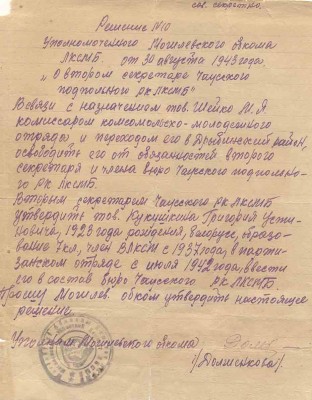 сов. секретно.
Решение №10
Уполномоченного Могилевского обкома
ЛКСМБ. от 30 августа 1943 года.
"О втором секретаре Чаусского
подпольного рк ЛКСМБ"
В связи с назначением тов. Шейко М.Я
комиссаром комсомольско-молодежного
отряда и переходом его в Дрибинский район,
освободить его от обязанностей второго
секретаря и члена бюро Чаусского подпольно-
го РК ЛКСМБ.
Вторым секретарем Чаусского РК ЛКСМБ
утвердить тов. Кукушкина Григория Усти-
новича, 1923 года рождения, белорус, образо-
вание 7 кл., член ВЛКСМ с 1937 года, в парти-
занском отряде с июля 1942 года, ввести
его в состав бюро Чаусского РК ЛКСМБ.
Прошу Могилев. обком утвердить настоящее
решение.
Могилевского обкома